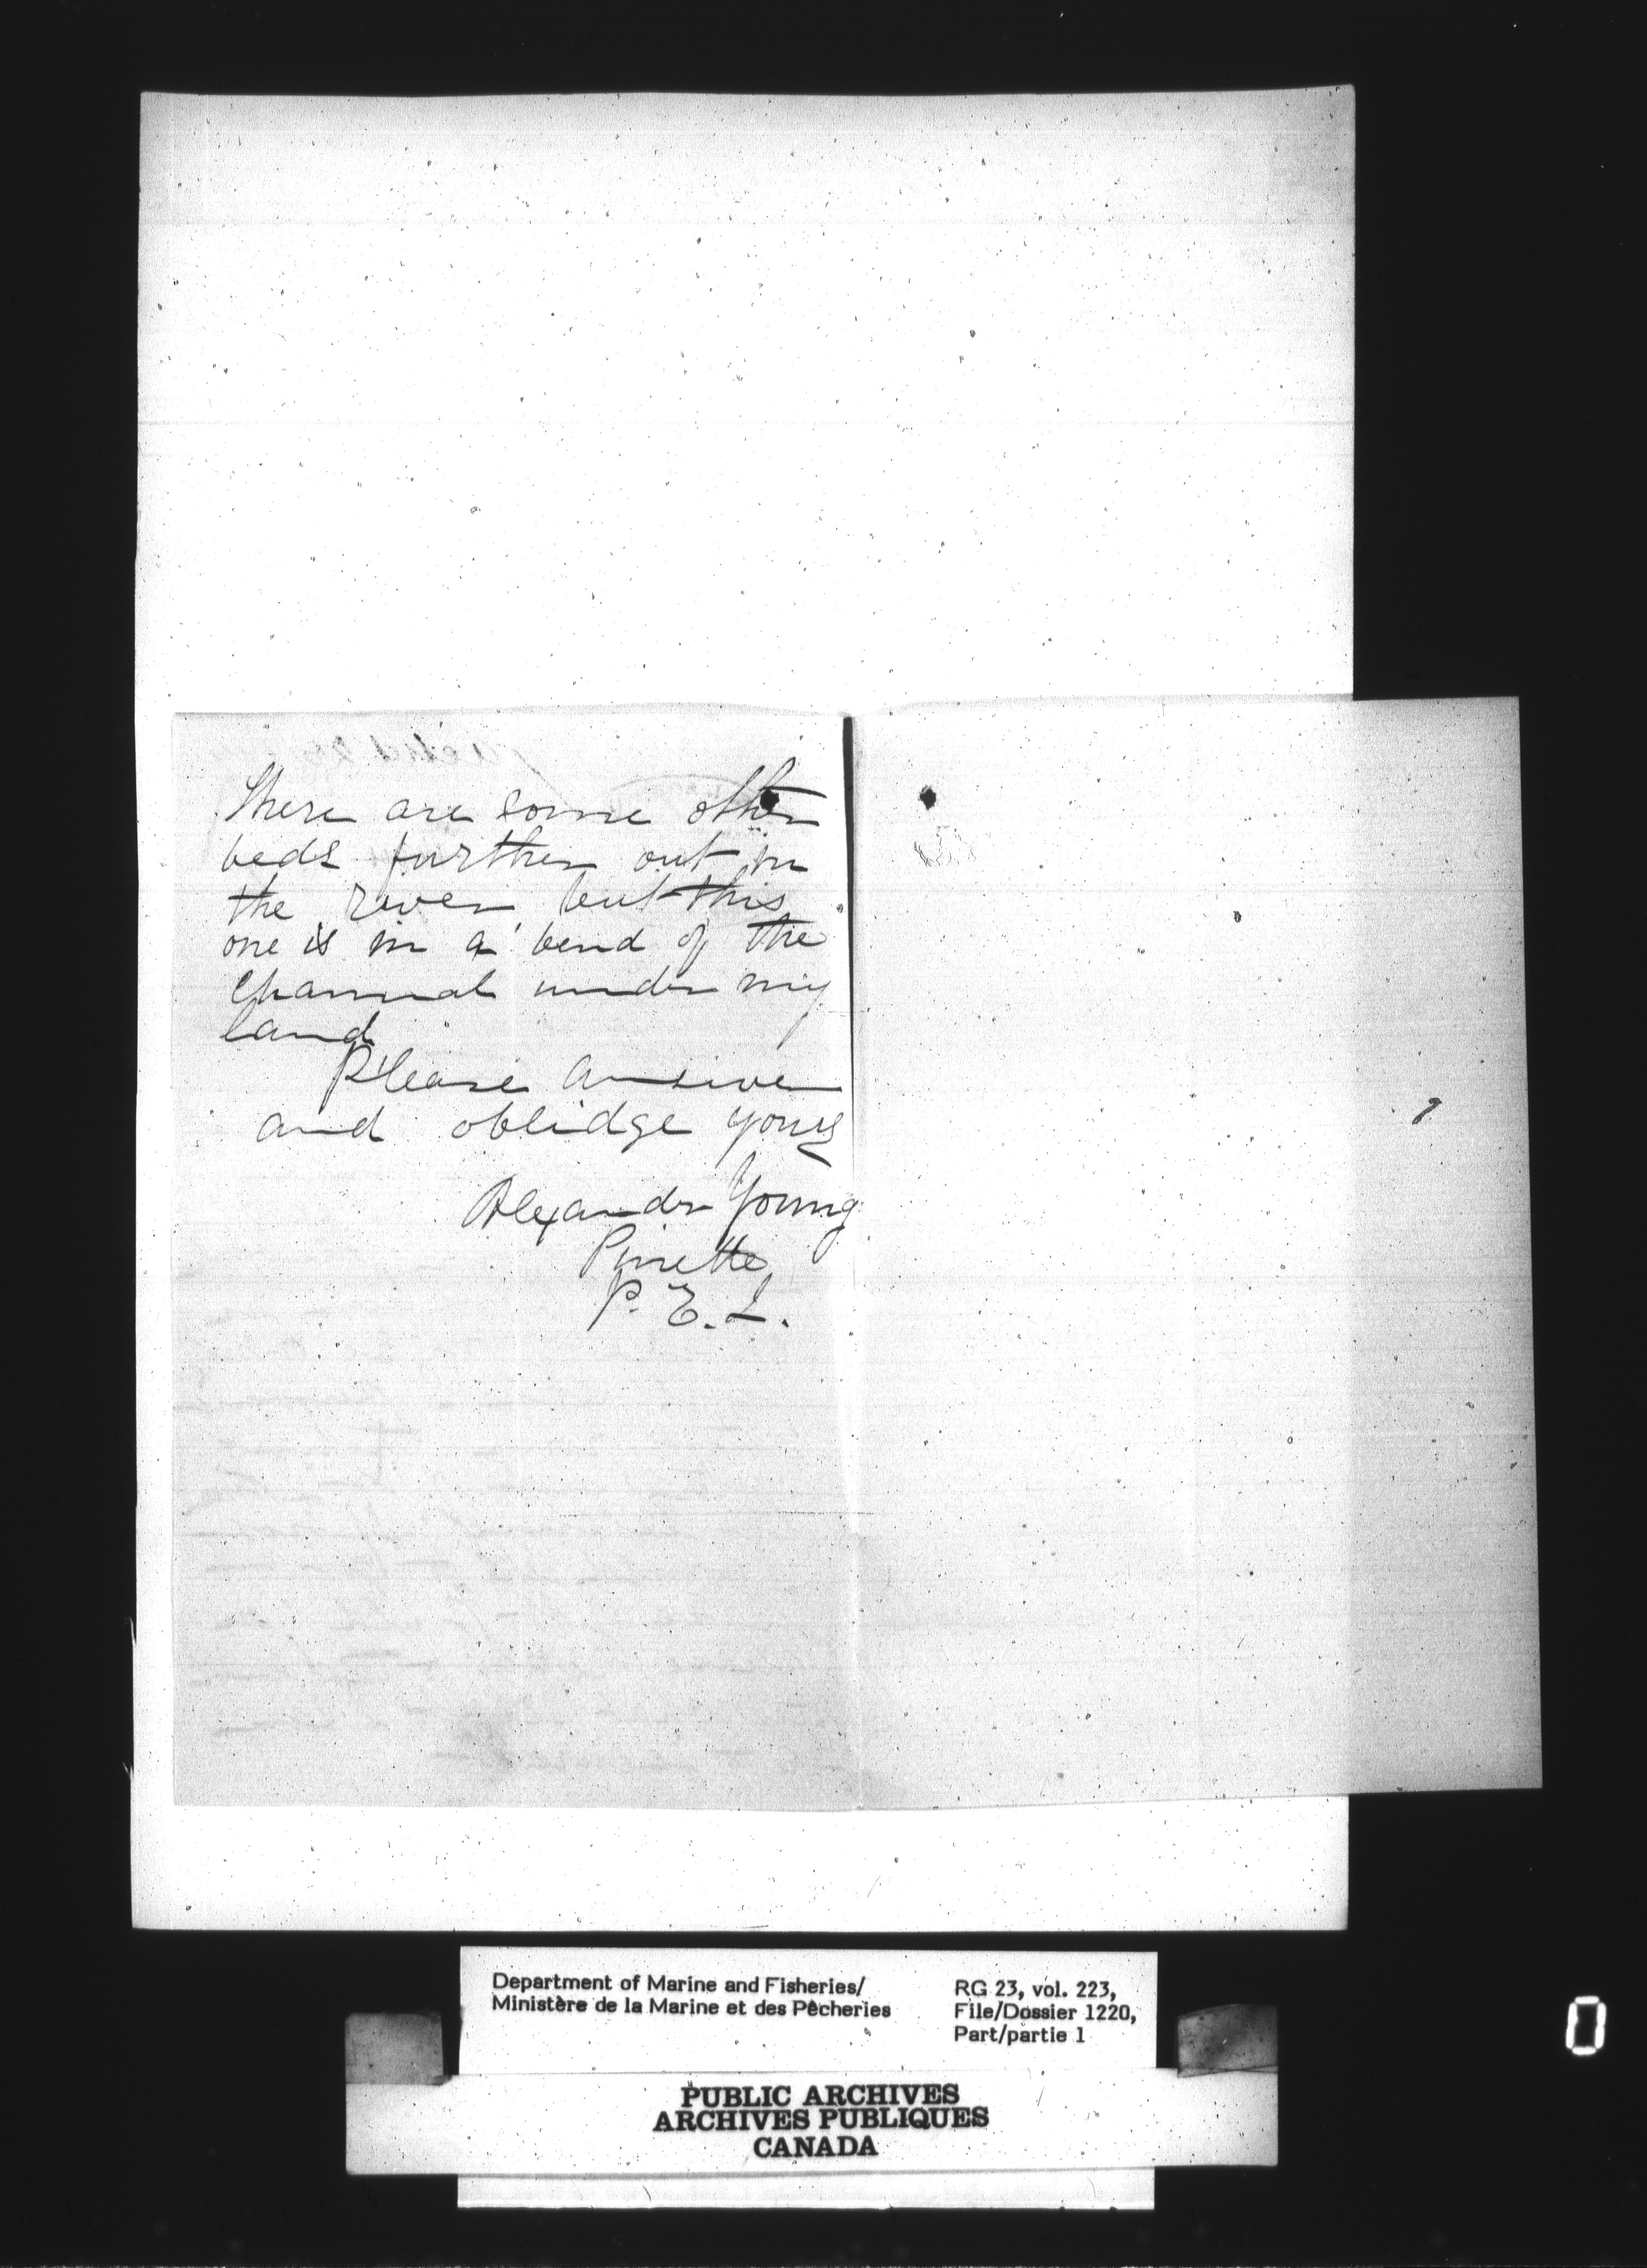 There are some other
beds further out in
the river but this
one is in a bend of the
Channal under my
land
Please answer
and oblidge yours
Alexander Young
Pinette
P. E. I.
Department of Marine and Fisheries/
Ministère de la Marine et des Pêcheries
RG 23, vol. 223,
File/Dossier 1220,
Part/partie 1
PUBLIC ARCHIVES
ARCHIVES PUBLIQUES
CANADA
0